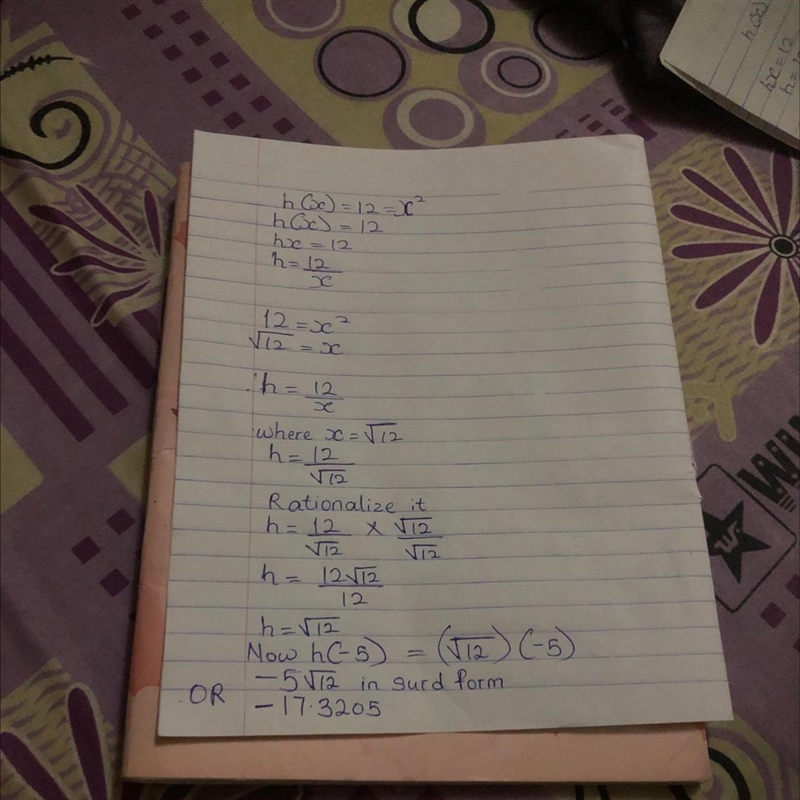 h(x) = 12 = x²
h(x) = 12
hx = 12
h = 12/x
12 = x²
√12 = x
∴ h = 12/x
where x = √12
h = 12/√12
Rationalize it
h = 12/√12 × √12/√12
h = 12√12/12
h = √12
Now h(-5) = (√12)(-5)
-5√12 in surd form
OR -17.3205
h(x)
hx = 12
h = 1